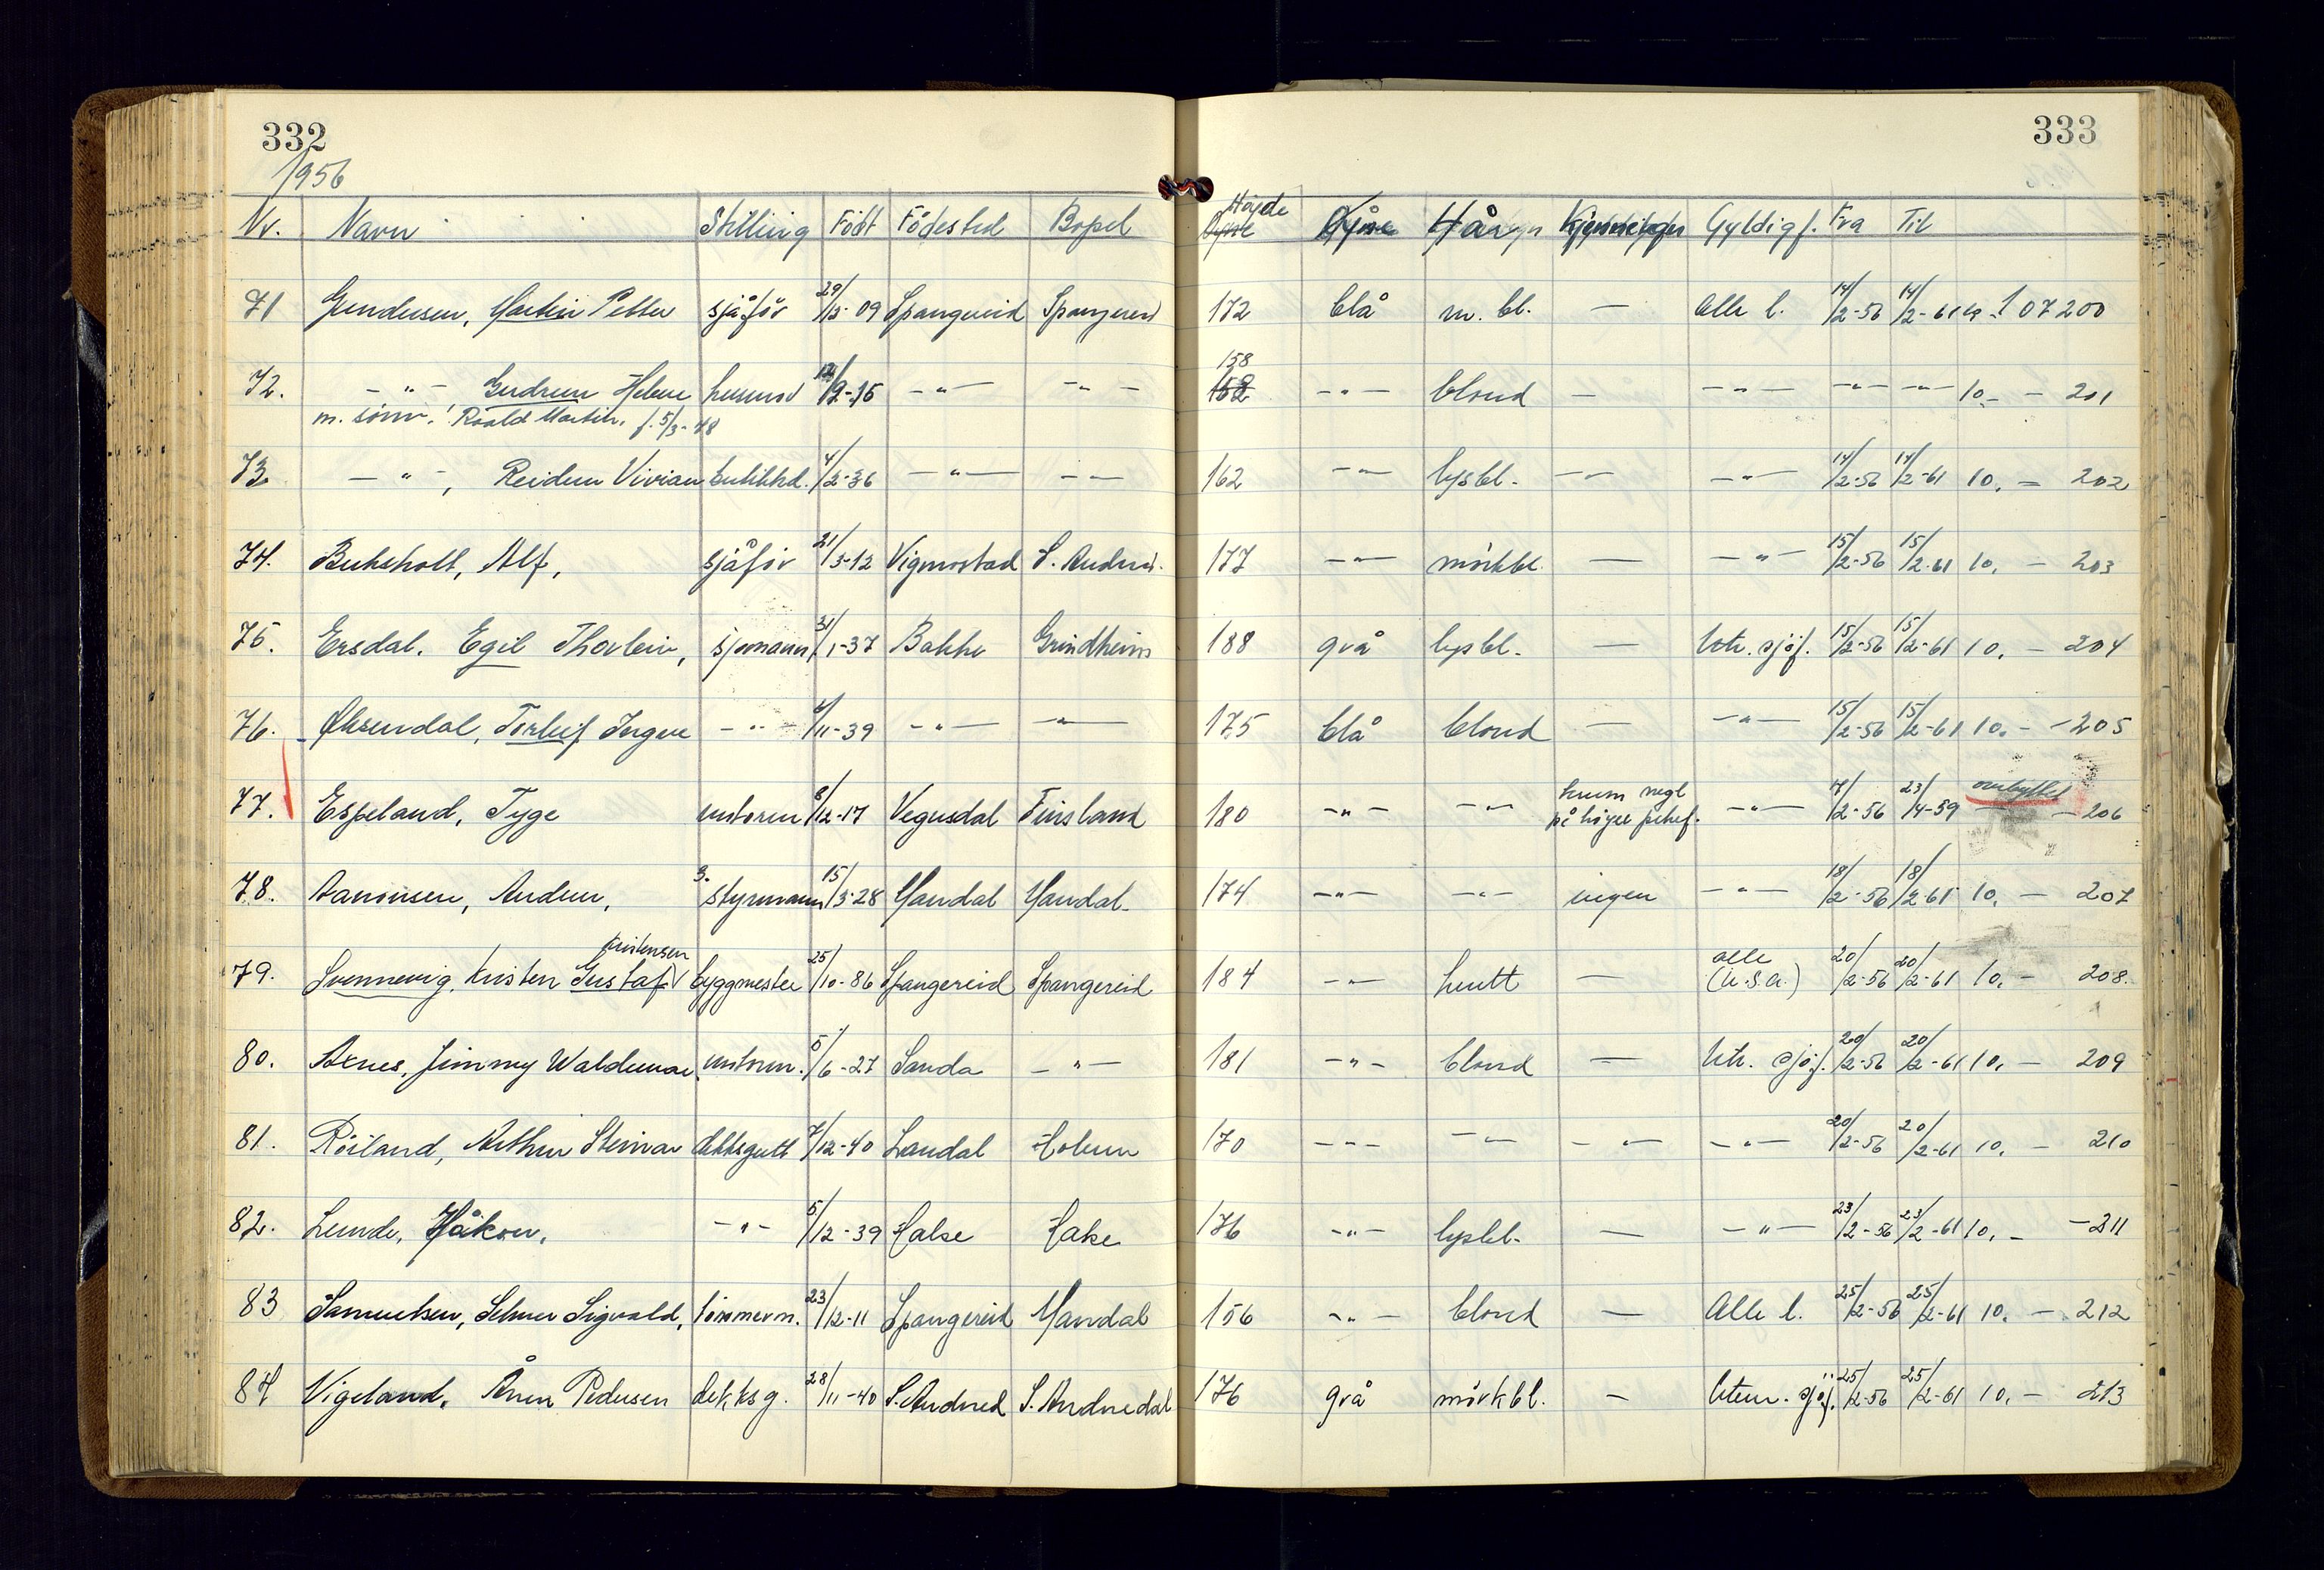 332
333
1956
Nr. Navn Stilling Födt Födested Bopel Høyde Øyne Hår Gyldig f. Fra Til
71 Gundersen, Martin Petter sjåför 29/13-09 Spangereid Spangereid 172 blå m. bl. — Alle l. 14/2-56 14/2-61 10.- 107200
72. -"- Gudrun Helene husmor 12/2-15 -"- -"- 158 152 -"- blond — -"- -"- -"- 10.- - 201
m. sönn: Roald Martin, f. 5/3-48
73. -"-, Reidun Vivian butikkd. 4/2-36 -"- -"- 162 -"- lysbl. -"- -"- 14/2-56 14/2-61 10.- 202
74. Buheholt, Alf, sjåför 21/3-12 Vigmostad S. Audned. 177 -"- mörkbl. — -"- 15/2-56 15/2-61 10.- 203
75. Ersdal, Egil Thorleiv, sjömann 31/1-37 Bakke Grindheim 188 grå lysbl. — Utr. sjöf. 15/2-56 15/2-61 10.- 204
76. Øksendal, Torleif Ingve -"- /11-39 -"- -"- 175 blå blond — -"- 15/2-56 15/2-61 10.- - 205
77. Espeland, Tyge motorm 8/12-17 Vegusdal Finsland 180 -"- -"- krum negl på höyre pekef. -"- 7/2-56 23/4-59 ombyttet - 206
78. Aanonsen, Audun, 3. styrmann 15/3-28 Mandal Mandal 174 -"- -"- ingen -"- 18/2-56 18/2-61 10.- 207
79. Svennevig, Kristen Gustaf Kristensen byggmester 25/10-86 Spangereid Spangereid 184 -"- hvitt — alle (U.S.A.) 20/2-56 20/2-61 10.- 208.
80. Axnes, Jimmy Waldemar motorm. 5/6-27 Sanda -"- 181 -"- blond — Utr. sjöf. 20/2-56 20/2-61 10.- 209
81. Röiland, Arthur Steinar dekksgutt 7/12-40 Laudal Holum 170 -"- -"- -"- -"- 20/2-56 20/2-61 10.- 210
82. Lunde, Håkon, -"- 5/12-39 Halse Halse 176 -"- lysbl. — -"- 23/2-56 23/2-61 10.- - 211
83 Samuelsen, Selmer Sigvald, tömmerm. 23/12-11 Spangereid Mandal 156 -"- blond — Alle l. 25/2-56 25/2-61 10.- 212
84 Vigeland, Ånen Pedersen dekksg. 28/11-40 S. Audned S. Audnedal 176 grå mörkbl. — Uten. sjöf. 25/2-56 25/2-61 10.- 213